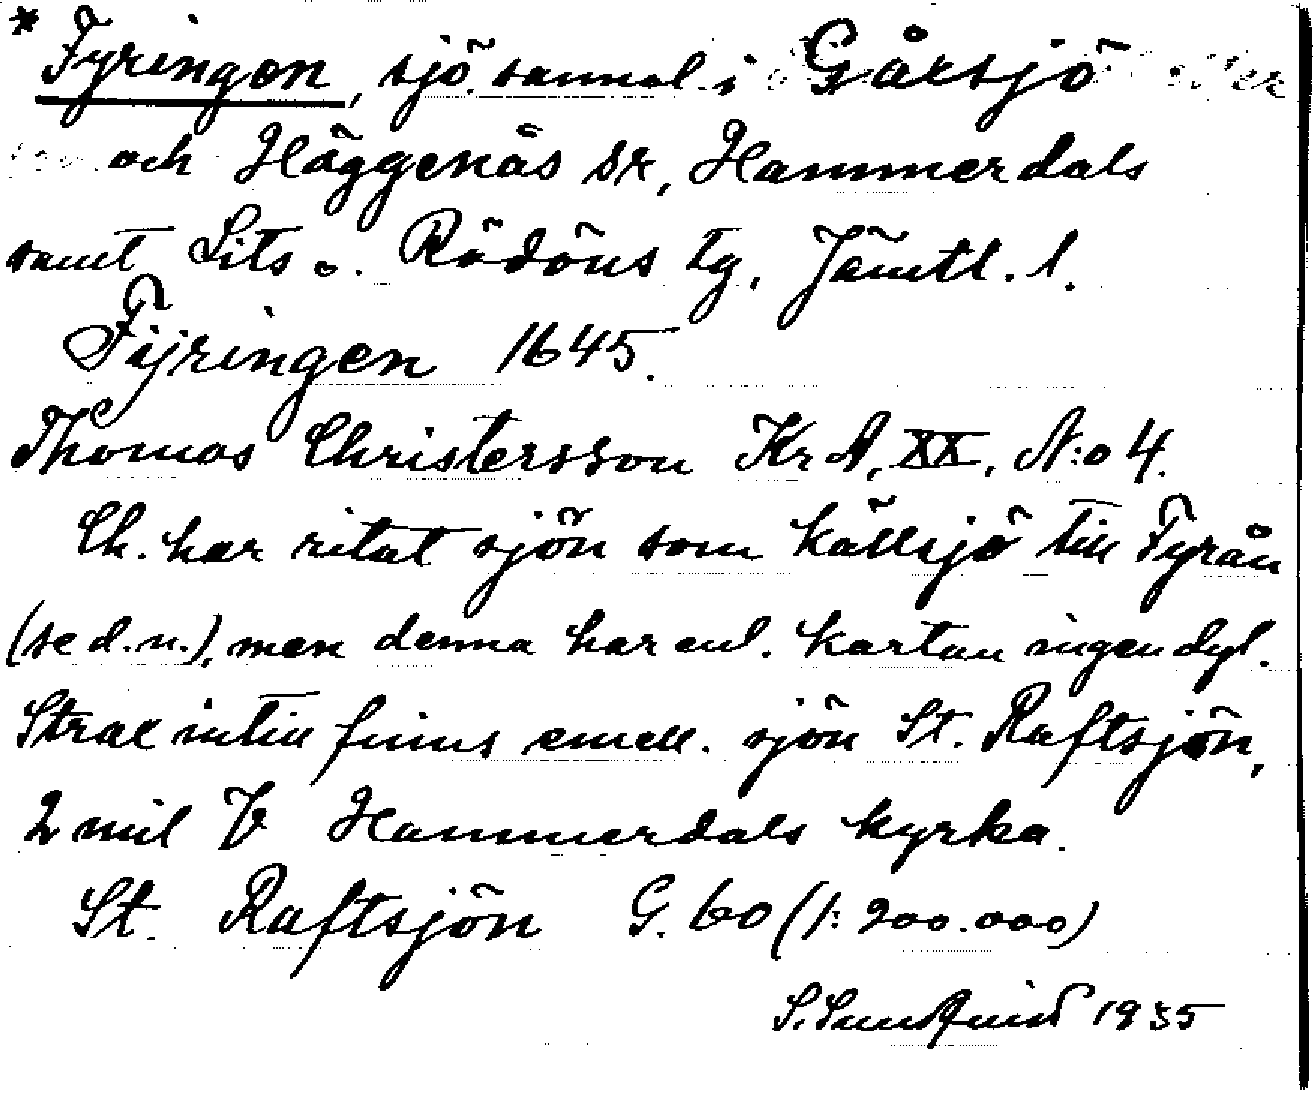 * Fyringen, sjö samal i Gåxsjö
och Häggenås sn, Hammerdals
samt Lits o. Rödöns tg, Jämtl. l.
Fijringen 1645.
Thomas Christersson Kr A, XX, N:o 4.
Ch. har ritat sjön som källsjö till Fyrån
(se d.n.), men denna har enl. kartan ingen dyl.
Strax intill finns emell. sjön St. Raftsjön,
2 mil V Hammerdals kyrka.
St. Raftsjön G. 60 (1:200.000)
S. Sundquist 1935